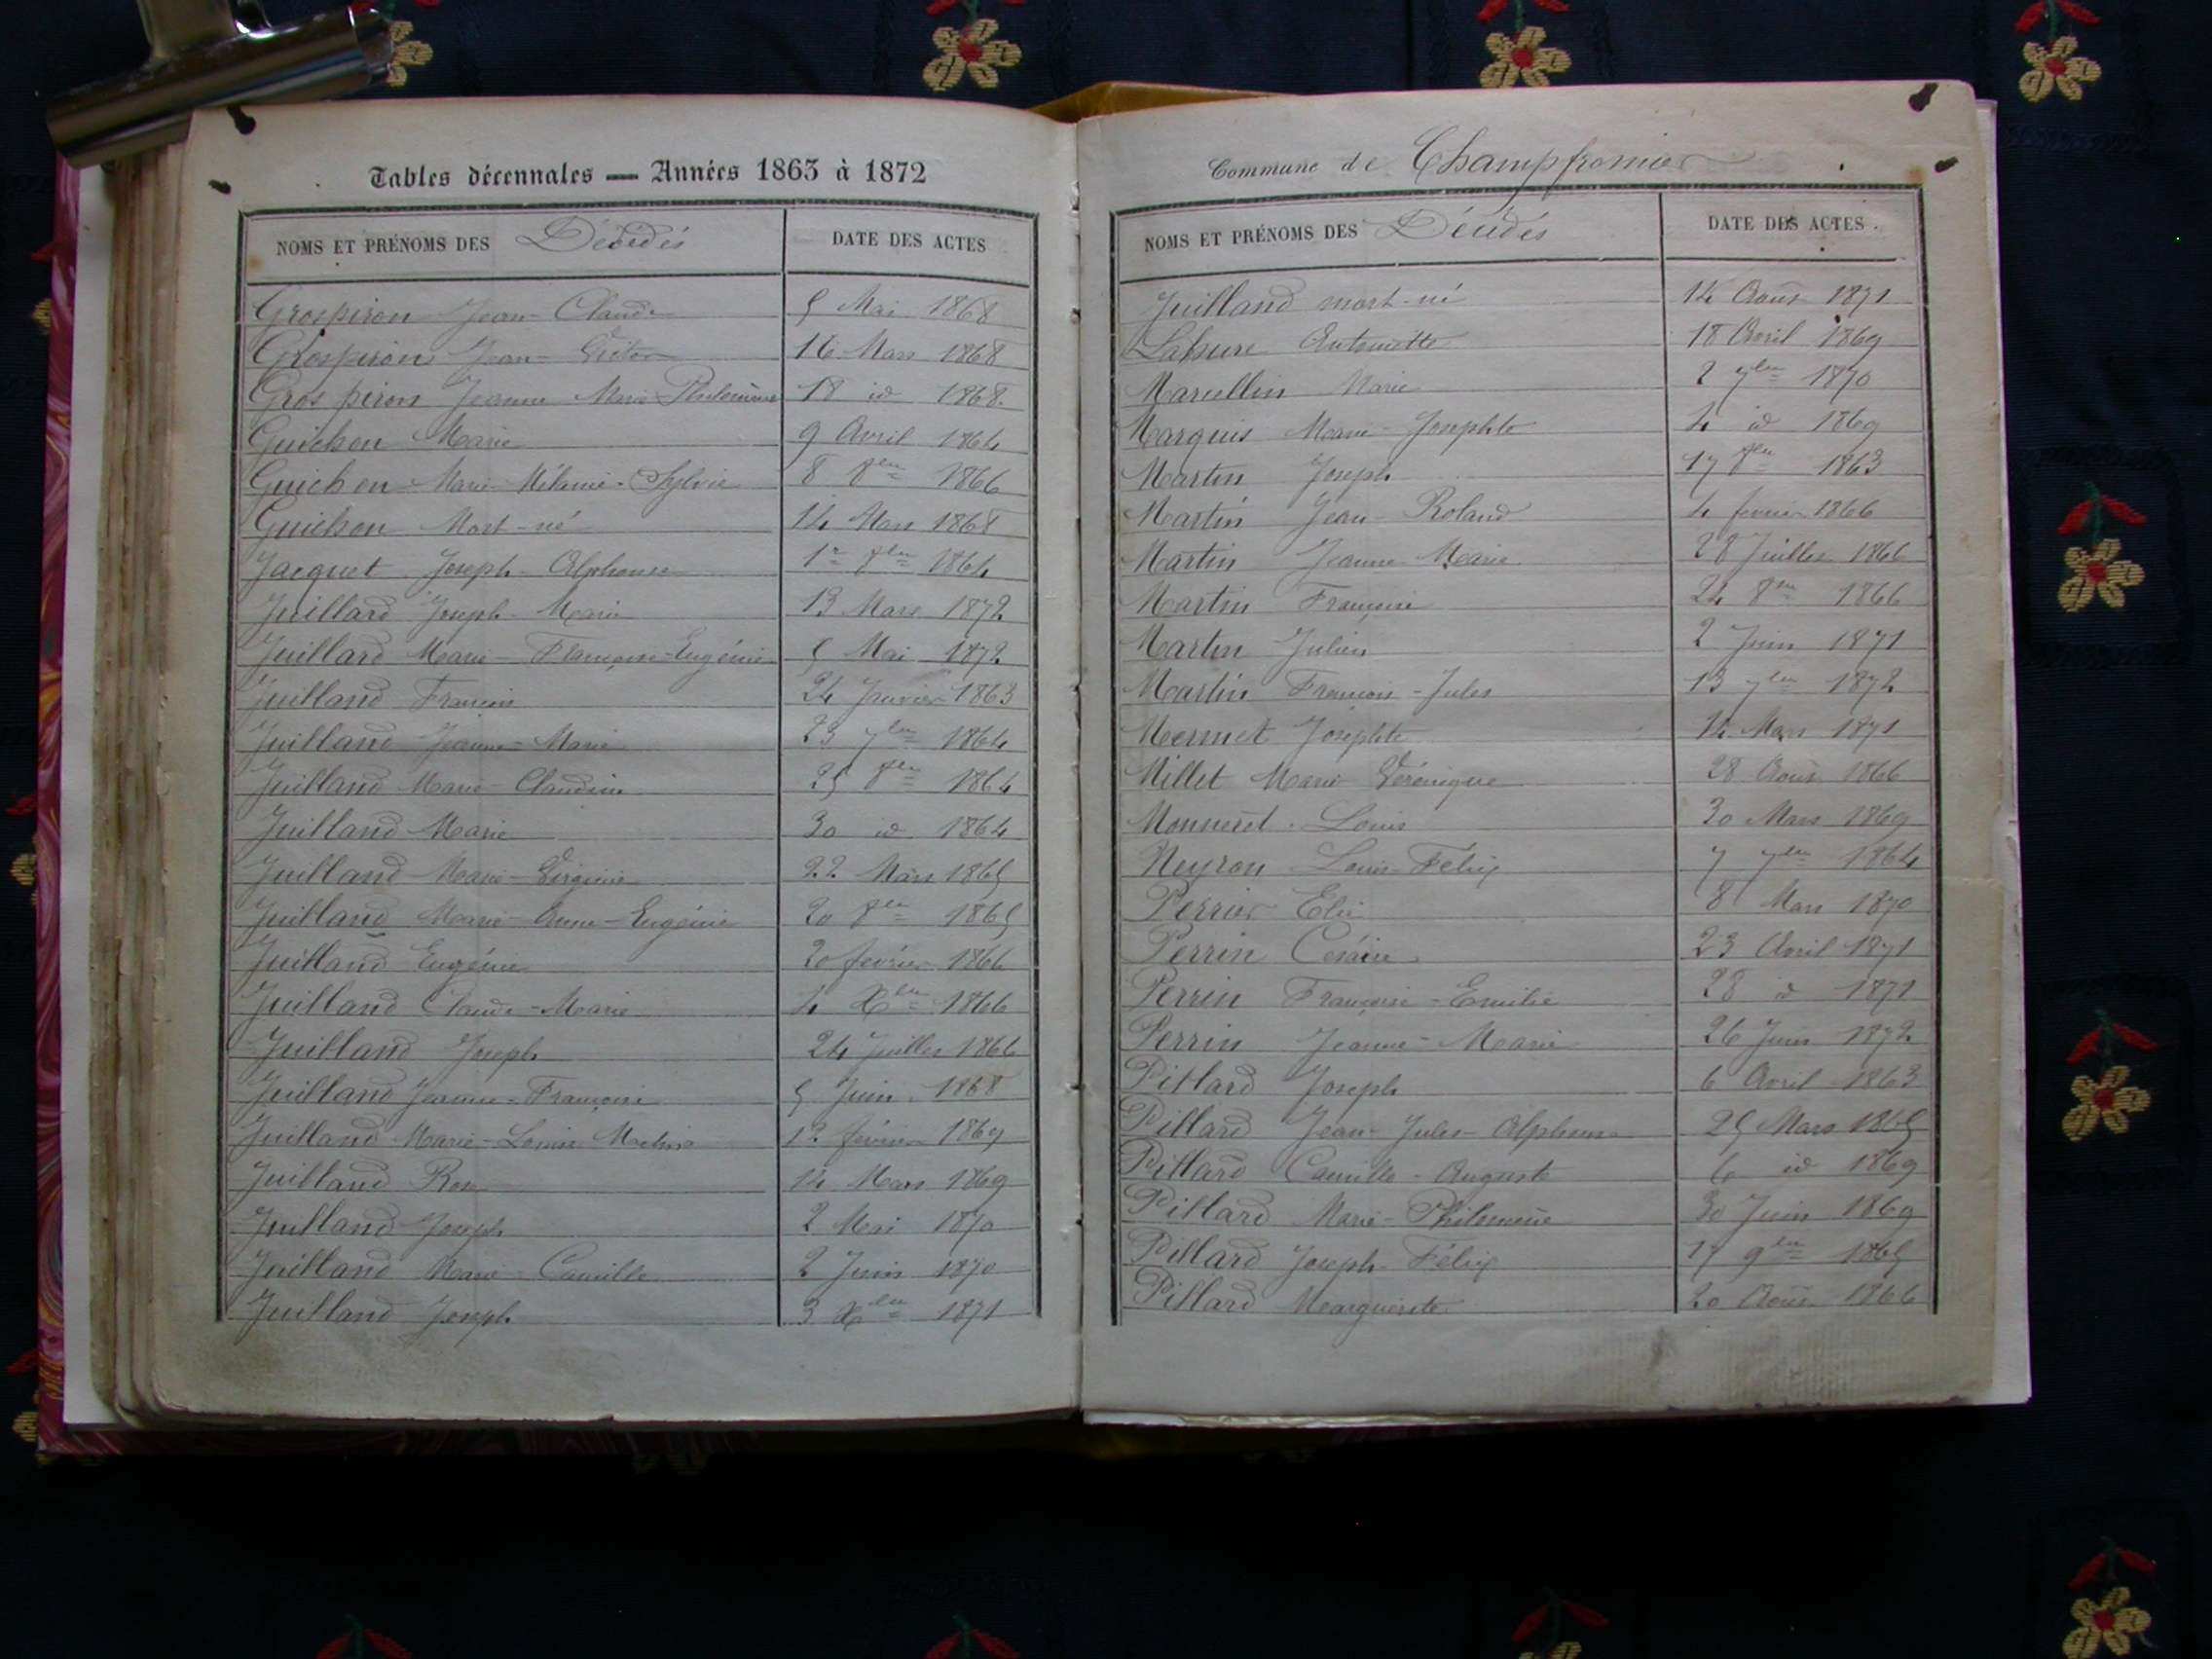 Tables décennales — Années 1863 à 1872
NOMS ET PRÉNOMS DES Décédés DATE DES ACTES
Grospiron Jean-Claude 5 Mai 1868
Grospiron Jean-Victor 16 Mars 1868
Grospiron Jeanne Marie Philomène 18 id 1868
Guichon Marie 9 Avril 1864
Guichon Marie-Mélanie-Sylvie 8 8bre 1866
Guichon Mort-né 14 Mars 1868
Jacquet Joseph-Alphonse 1er 8bre 1864
Juillard Joseph-Marie 13 Mars 1872
Juillard Marie-Françoise-Eugénie 5 Mai 1872
Juilland François 24 Janvier 1863
Juilland Jeanne-Marie 23 7bre 1864
Juilland Marie-Claudine 25 8bre 1864
Juilland Marie 30 id 1864
Juilland Marie-Virginie 22 Mars 1865
Juilland Marie-Anne-Eugénie 20 8bre 1865
Juilland Eugénie 20 février 1866
Juilland Claude-Marie 4 Xbre 1866
Juilland Joseph 24 Juillet 1866
Juilland Jeanne-Françoise 5 Juin 1868
Juilland Marie-Louise 12 février 1869
Juilland Rose 14 Mars 1869
Juilland Joseph 2 Mai 1870
Juilland Marie-Camille 2 Juin 1870
Juilland Joseph 3 Xbre 1871
Commune de Champfromier
NOMS ET PRÉNOMS DES Décédés DATE DES ACTES
Juilland mort-né 14 Août 1871
Antoinette 18 Avril 1869
Marcellin Marie 2 7bre 1870
Marquis Marie-Josephte 4 id 1869
Martin Joseph 17 8bre 1863
Martin Jean-Roland 4 février 1866
Martin Jeanne-Marie 28 Juillet 1866
Martin Françoise 24 8bre 1866
Martin Julien 2 Juin 1871
Martin François-Jules 13 7bre 1872
Mermet Josephte 14 Mars 1871
Millet Marie Véronique 28 Août 1866
Monneret Louis 30 Mars 1869
Neyron Louis-Félix 7 7bre 1864
Perrier Elie 8 Mars 1870
Perrin Césaire 23 Avril 1871
Perrin Françoise-Emilie 28 id 1871
Perrin Jeanne-Marie 26 Juin 1872
Pillard Joseph 6 Avril 1863
Pillard Jean-Jules-Alphonse 25 Mars 1865
Pillard Camille-Auguste 6 id 1869
Pillard Marie-Philomène 30 Juin 1869
Pillard Joseph-Félix 17 9bre 1865
Pillard Marguerite 20 Août 1866